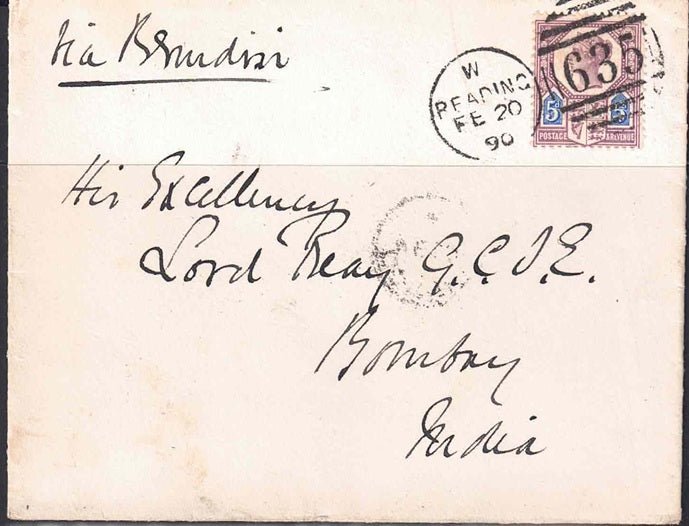 via Brindisi
W
READING
FE 20
90
635
5d
POSTAGE & REVENUE
His Excellency
Lord Reay G.C.I.E.
Bombay
India